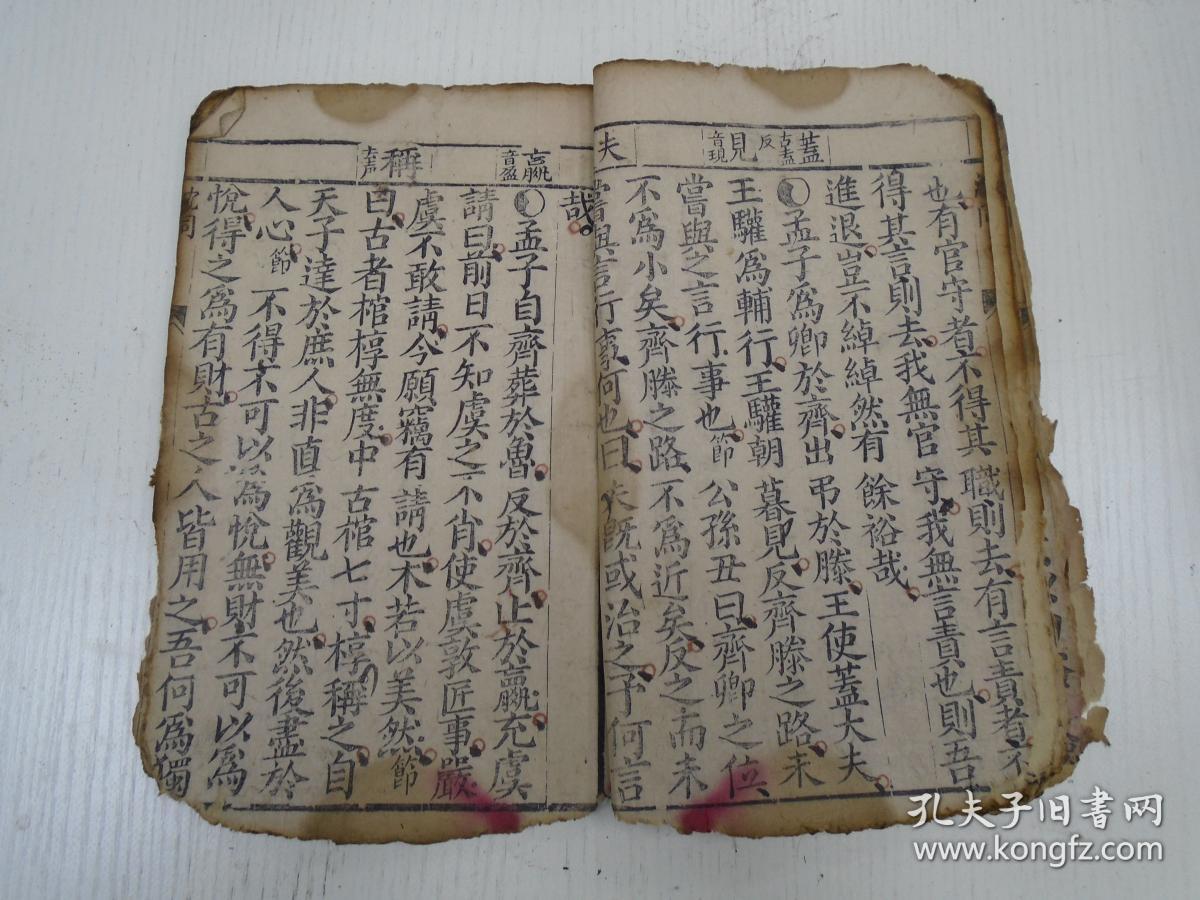 蓋 古盍反
見 音現
夫
也有官守者不得其職則去有言責者不
得其言則去我無官守我無言責也則吾
進退豈不綽綽然有餘裕哉
孟子為卿於齊出弔於滕王使蓋大夫
王驩為輔行王驩朝暮見反齊滕之路未
嘗與之言行事也節公孫丑曰齊卿之位
不為小矣齊滕之路不為近矣反之而未
嘗與言行事何也曰夫既或治之予何言
哉
嬴 音盈
稱 去聲
孟子自齊葬於魯反於齊止於嬴充虞
請曰前日不知虞之不肖使虞敦匠事嚴
虞不敢請今願竊有請也木若以美然節
曰古者棺椁無度中古棺七寸椁稱之自
天子達於庶人非直為觀美也然後盡於
人心節不得不可以為悅無財不可以為
悅得之為有財古之人皆用之吾何為獨
孔夫子旧书网
www.kongfz.com